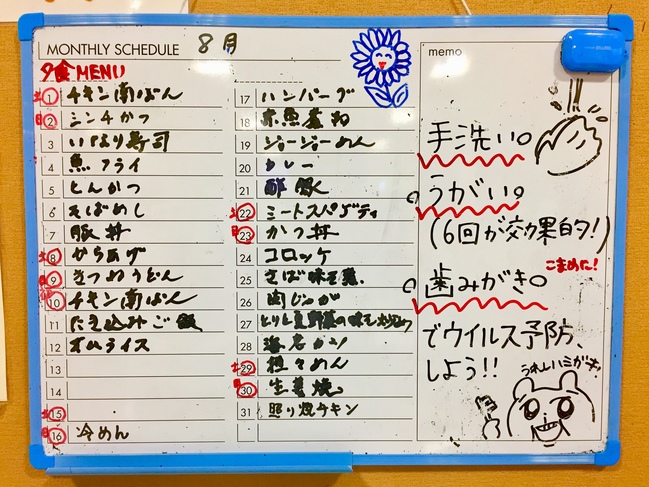 MONTHLY SCHEDULE 8月
夕食MENU
土 1 チキン南ばん
日 2 ミンチかつ
3 いなり寿司
4 魚フライ
5 とんかつ
6 そばめし
7 豚丼
土 8 からあげ
日 9 きつねうどん
10 チキン南ばん
11 たき込みご飯
12 オムライス
13
14
土 15
日 16 冷めん
17 ハンバーグ
18 赤魚煮付
19 ジャージャーめん
20 カレー
21 酢豚
土 22 ミートスパゲティ
日 23 かつ丼
24 コロッケ
25 さば味そ煮
26 肉じゃが
27 とりと夏野菜の味そ炒め
28 海老カツ
土 29 担々めん
日 30 生姜焼
31 照り焼チキン
memo
手洗い。
うがい。
(6回が効果的!)
こまめに!
歯みがき。
でウイルス予防、
しよう!!
うれしハミガキ!